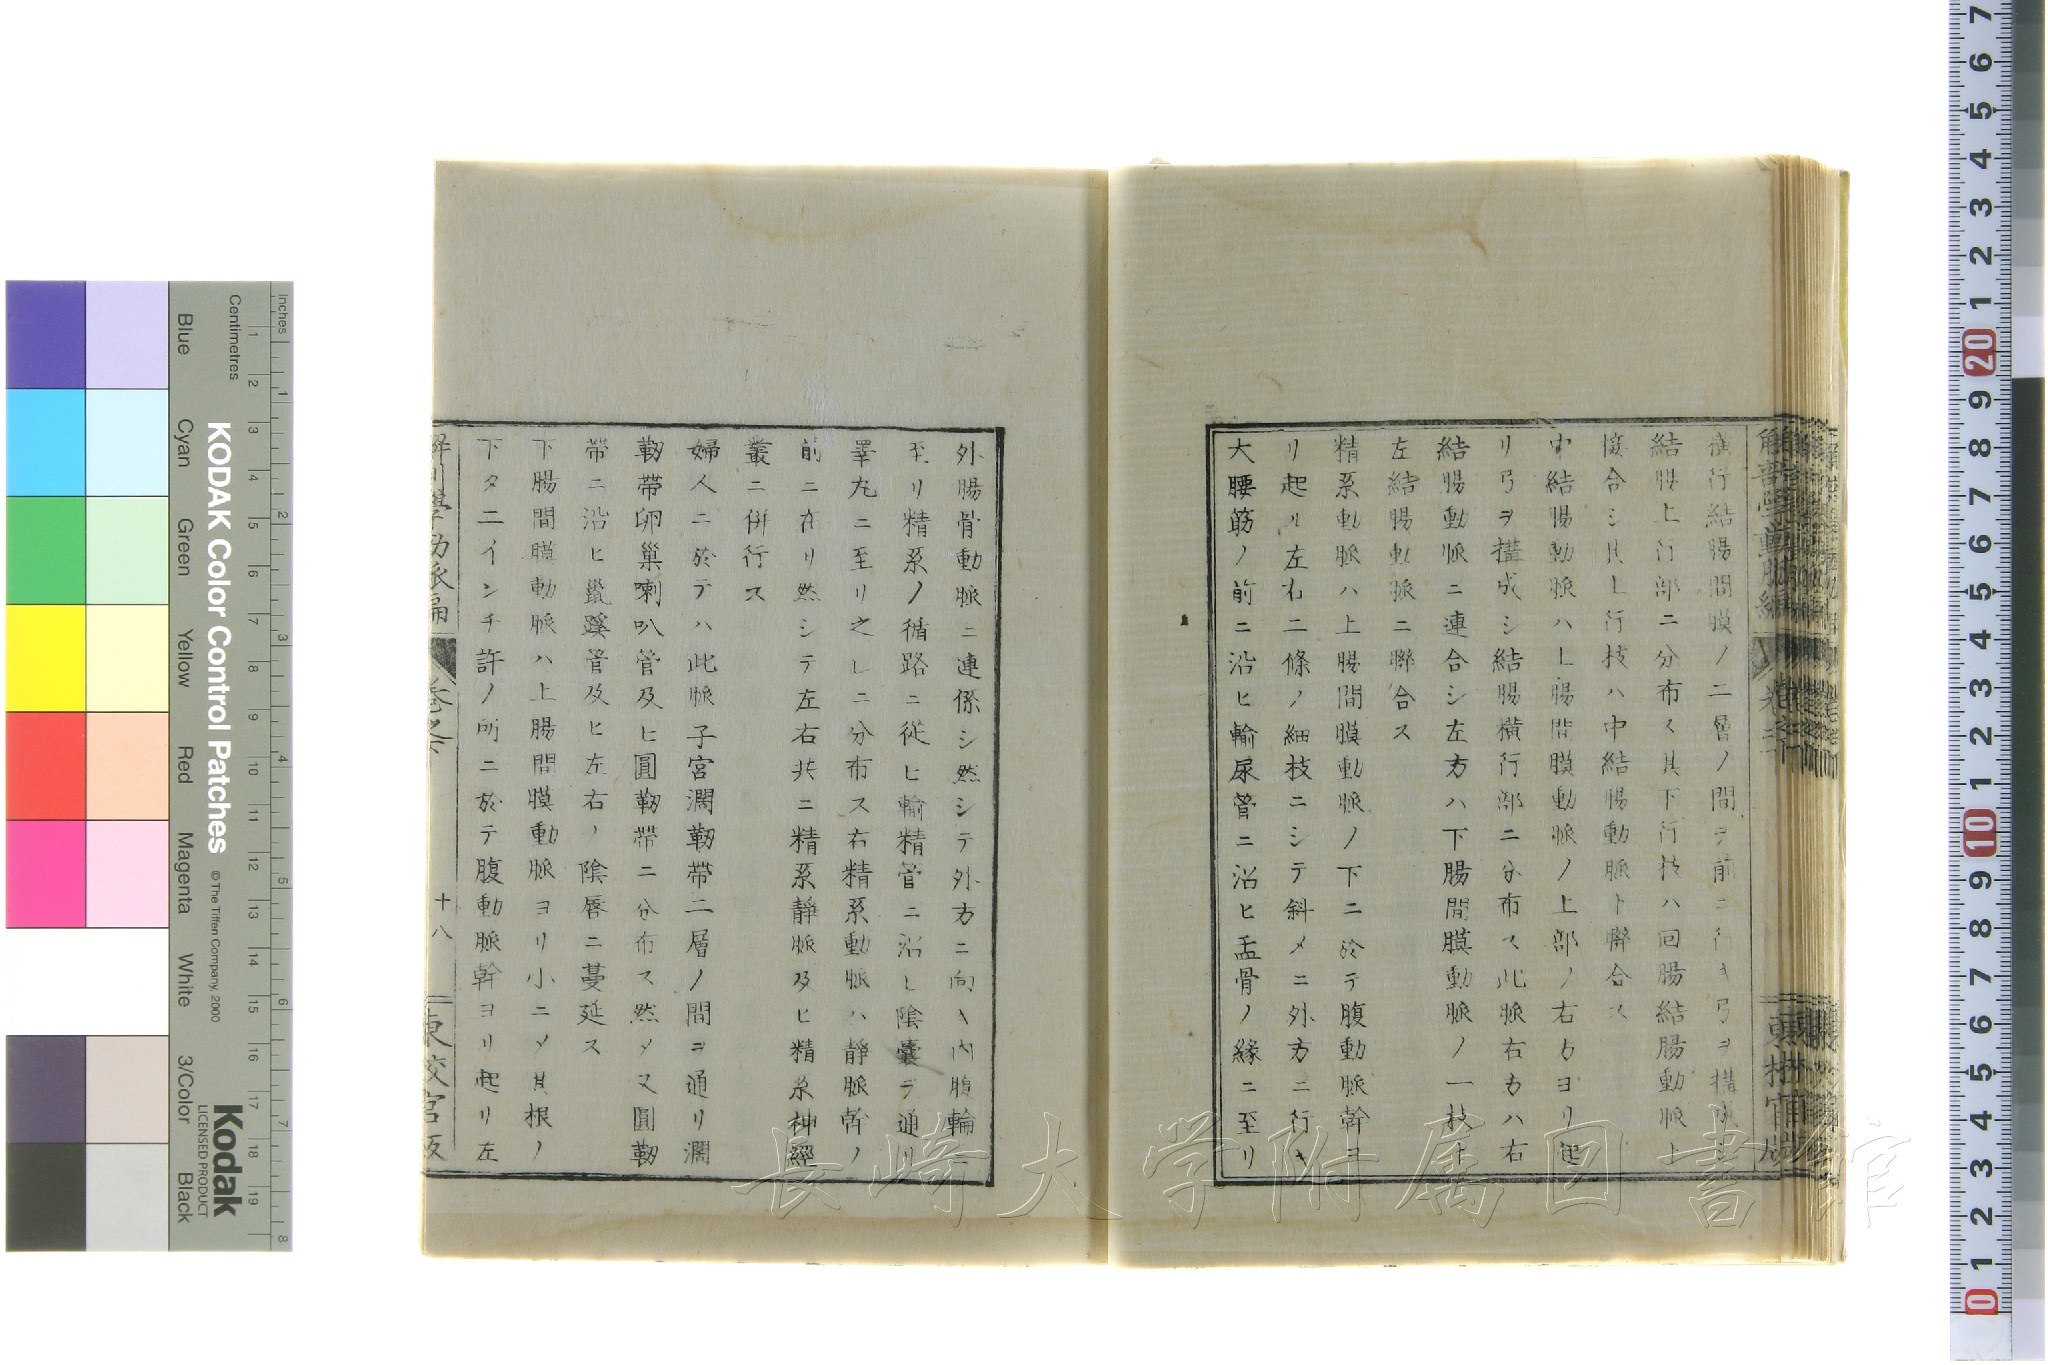 横行結腸間膜ノ二層ノ間ヲ前ニ行キ弓ヲ構成シ
結腸上行部ニ分布ス其下行枝ハ回腸結腸動脈上
接合シ其上行枝ハ中結腸動脈ト聯合ス
中結腸動脈ハ上腸間膜動脈ノ上部ノ右方ヨリ起
リ弓ヲ構成シ結腸横行部ニ分布ス此脈右方ハ右
結腸動脈ニ連合シ左方ハ下腸間膜動脈ノ一枝上
左結腸動脈ニ聯合ス
精系動脈ハ上腸間膜動脈ノ下ニ於テ腹動脈幹ヨ
リ起ル左右二條ノ細枝ニシテ斜メニ外方ニ行キ
大腰筋ノ前ニ沿ヒ輸尿管ニ沿ヒ盂骨ノ緣ニ至リ
外腸骨動脈ニ連係シ然シテ外方ニ向ヘ内腹輪ニ
至リ精系ノ循路ニ從ヒ輸精管ニ沿ヒ陰囊ヲ通リ
睾丸ニ至リ之レニ分布ス右精系動脈ハ靜脈幹ノ
前ニ在リ然シテ左右共ニ精系靜脈及ヒ精系神經
叢ニ併行ス
婦人ニ於テハ此脈子宮濶靱帶二層ノ間ヲ通リ濶
靱帶卵巢喇叭管及ヒ圓靱帶ニ分布ス然メ又圓靱
帶ニ沿ヒ鼠蹊管及ヒ左右ノ陰唇ニ蔓延ス
下腸間膜動脈ハ上腸間膜動脈ヨリ小ニメ其根ノ
下タ二インチ許ノ所ニ於テ腹動脈幹ヨリ起リ左
十八
KODAK Color Control Patches
© The Tiffen Company, 2000
Kodak
LICENSED PRODUCT
Inches
Centimetres
Blue
Cyan
Green
Yellow
Red
Magenta
White
3/Color
Black
長崎大学附属図書館